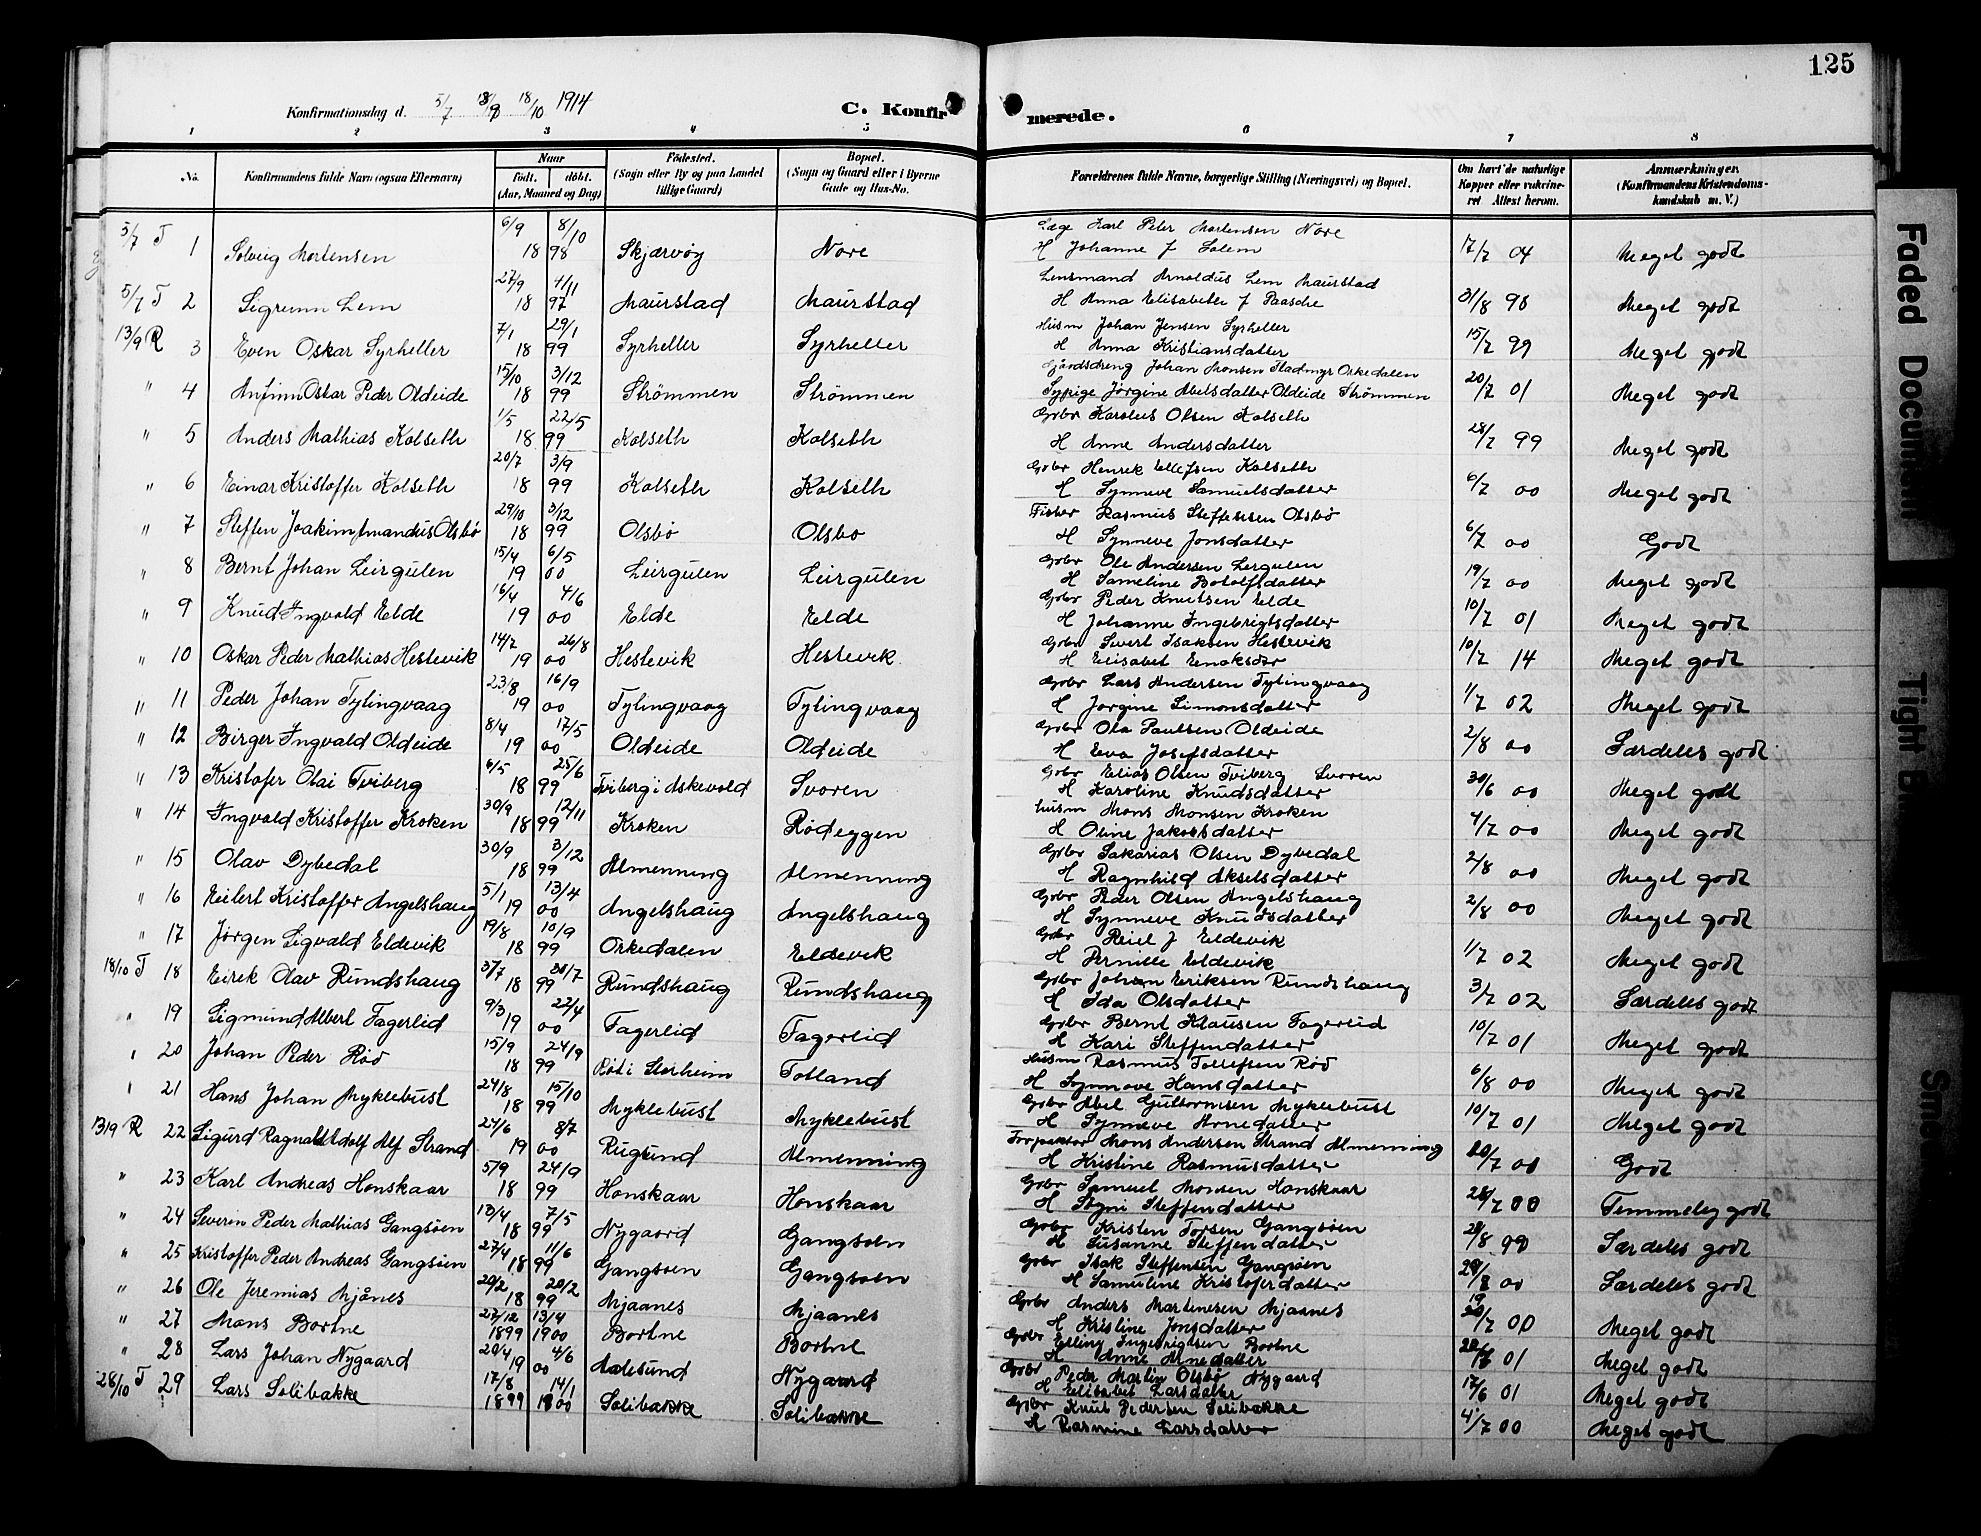 125
Konfirmationsdag d. 5/7 13/9 18/10 1914 C. Konfirmerede.
1 2 3 4 5 6 7 8
No. Konfirmandens fulde Navn (ogsaa Efternavn) Naar født. døbt. (Aar, Maaned og Dag) Fødested. (Sogn eller By og paa Landet tillige Gaard) Bopæl. (Sogn og Gaard eller i Byerne Gade og Hus-No. Forældrenes fulde Navne, borgerlige Stilling (Næringsvei) og Bopæl. Om havt de naturlige Kopper eller vakcineret Attest herom. Anmærkninger. (Konfirmandens Kristendomskundskab m. V.)
5/7 T 1 Solveig Mortensen 6/9 1898 8/10 Skjærvøy Nore Læge Karl Peter Mortensen Nore H Johanne f Solem 17/7 04 Meget godt
5/7 T 2 Sigrunn Lem 27/9 1897 4/11 Maurstad Maurstad Lensmand Arnoldus Lem Maurstad H Anna Elisabeth f Paasche 31/8 98 Meget godt
13/9 R 3 Even Oskar Syrheller 7/1 1899 29/1 Syrheller Syrheller Husm Johan Jensen Syrheller H Anna Kristiansdatter 15/7 99 Meget godt
" 4 Anfinn Oskar Peder Oldeide 15/10 1899 3/12 Strømmen Strømmen Gårdsdreng Johan Monsen Stadmyr Orkedalen Sypige Jørgine Abelsdatter Oldeide Strømmen 20/7 01 Meget godt
" 5 Anders Mathias Kolseth 1/5 1899 22/5 Kolseth Kolseth Gbr Karolus Olsen Kolseth H Anne Andersdatter 28/7 99 Meget godt
" 6 Einar Kristoffer Kolseth 20/7 1899 3/9 Kolseth Kolseth Gbr Henrik Ellefsen Kolseth H Synneve Samuelsdatter 6/7 00 Meget godt
" 7 Steffen Joakim Amandus Olsbø 29/10 1899 3/12 Olsbø Olsbo Fisker Rasmus Steffensen Olsbø H Synneve Jonsdatter 6/7 00 Godt
" 8 Bernt Johan Leirgulen 15/4 1900 6/5 Leirgulen Leirgulen Gbr Ole Andersen Lergulen H Sameline Botolfsdatter 19/7 00 Meget godt
" 9 Knud Ingvald Elde 16/4 1900 4/6 Elde Elde Gbr Peder Knutsen Elde H Johanne Ingebrigtsdatter 10/7 01 Meget godt
" 10 Oskar Peder Mathias Hestevik 14/7 1900 26/8 Hestevik Hestevik Gbr Sivert Isaksen Hestevik H Elisabet 10/7 14 Meget godt
" 11 Peder Johan Tytingvaag 23/8 1900 16/9 Tytingvaag Tytingvaag Gbr Lars Andersen Tytingvaag H Jørgine Simonsdatter 1/7 02 Meget godt
" 12 Birger Ingvald Oldeide 8/4 1900 17/5 Oldeide Oldeide Gbr Ola Paulsen Oldeide H Eva Josefsdatter 2/8 00 Særdeles godt
" 13 Kristofer Olai Tviberg 6/5 1899 25/6 Tviberg i Askevold Svoren Gbr Elias Olsen Tviberg Svoren H Karoline Knudsdatter 30/6 00 Meget godt
" 14 Ingvald Kristoffer Kroken 30/9 1899 12/11 Kroken Rødeggen husm Mons Monsen Kroken H Oline Jakobsdatter 4/7 00 Meget godt
" 15 Olav Dybedal 30/9 1899 3/12 Almenning Almenning Gbr Sakarias Olsen Dybedal H Ragnhild Akselsdatter 2/8 00 Meget godt
" 16 Eilert Kristoffer Angelshaug 5/1 1900 13/4 Angelshaug Angelshaug Gbr Peder Olsen Angelshaug H Synneve Knudsdatter 2/8 00 Meget godt
" 17 Jørgen Sigvald Eldevik 19/8 1899 10/9 Orkedalen Eldevik Gbr Reiel J Eldevik H Pernille Eldevik 1/7 02 Meget godt
18/10 T 18 Eirek Olav Rundshaug 3/7 1899 30/7 Rundshaug Rundshaug Gbr Johan Eriksen Rundshaug H Ida Olsdatter 3/7 02 Særdeles godt
" 19 Sigmund Albert Fagerlid 9/3 1900 22/4 Fagerlid Fagerlid Gbr Bernt Klausen Fagerlid H Kari Steffendatter 10/7 01 Meget godt
" 20 Johan Peder Rød 15/9 1899 24/9 Rød i Storheim Totland Husm Rasmus Tollefsen Rød H Synnove Hansdatter 6/8 00 Meget godt
" 21 Hans Johan Myklebust 24/8 1899 15/10 Myklebust Myklebust Gbr Abel Guttormsen Myklebust H Synneve Arnedatter 10/7 01 Meget godt
13/9 R 22 Sigurd Ragnald Adolf Alf Strand 24/6 1900 8/7 Rugsund Almenning Forpakter Mons Andersen Strand Almenning H Kristine Rasmusdatter 20/7 00 Godt
" 23 Karl Andreas Honskaar 5/9 1899 24/9 Honskaar Honskaar Gbr Samuel Monsen Honskaar H Steffendatter 28/7 00 Temmeleg godt
" 24 Severin Peder Mathias Gangsøen 10/4 1899 7/5 Nygaard Gangsøen Gbr Kristen Torsen Gangsøen H Susanne Steffendatter 28/8 99 Særdeles godt
" 25 Kristoffer Peder Andreas Gangsøen 27/4 1899 11/6 Gangsøen Gangsøen Gbr Isak Steffensen Gangsøen H Samuline Kristoferdatter 29/8 00 Særdeles godt
" 26 Ole Jeremias Mjånes 20/2 1899 20/2 Mjaanes Mjaanes Gbr Anders Martinesen Mjaanes H Kristine Jonsdatter 19 20/7 00 Meget godt
" 27 Mons Bortne 27/12 1899 13/4 1900 Bortne Bortne Gbr Elling Ingebrigtsen Bortne H Anne Arnedatter 01 Meget godt
" 28 Lars Johan Nygaard 20/4 1900 4/6 Aalesund Nygaard Gbr Peder Martin Olsbø Nygaard H Elisabet Larsdatter 17/6 01 Meget godt
28/10 T 29 Lars Solibakke 17/8 1899 14/1 1900 Solibakke Solibakke Gbr Knut Pedersen Solibakke H Rasmine Larsdatter 4/7 00 Meget godt
Faded Document
Tight